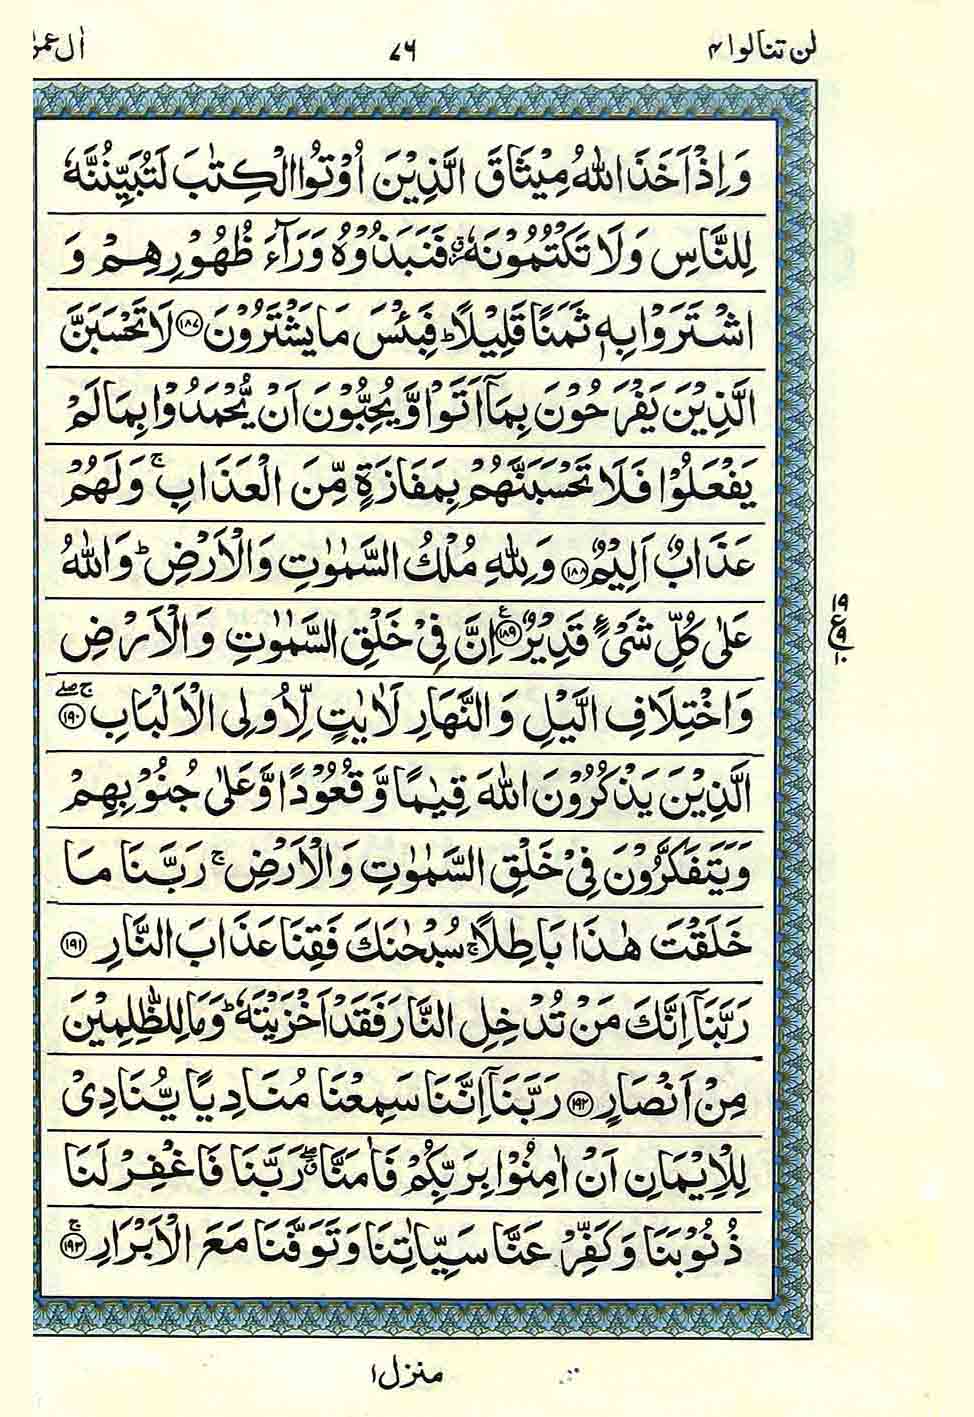 لن تنالوا ۴ ۷۶ اٰل عمرٰن
وَاِذْ اَخَذَ اللّٰهُ مِيْثَاقَ الَّذِيْنَ اُوْتُوا الْكِتٰبَ لَتُبَيِّنُنَّهٗ
لِلنَّاسِ وَلَا تَكْتُمُوْنَهٗ ز فَنَبَذُوْهُ وَرَآءَ ظُهُوْرِهِمْ وَ
اشْتَرَوْا بِهٖ ثَمَنًا قَلِيْلًا ؕ فَبِئْسَ مَا يَشْتَرُوْنَ ﴿۱۸۷﴾ لَا تَحْسَبَنَّ
الَّذِيْنَ يَفْرَحُوْنَ بِمَاۤ اَتَوْا وَّيُحِبُّوْنَ اَنْ يُّحْمَدُوْا بِمَا لَمْ
يَفْعَلُوْا فَلَا تَحْسَبَنَّهُمْ بِمَفَازَةٍ مِّنَ الْعَذَابِ ۚ وَلَهُمْ
عَذَابٌ اَلِيْمٌ ﴿۱۸۸﴾ وَلِلّٰهِ مُلْكُ السَّمٰوٰتِ وَالْاَرْضِ ؕ وَاللّٰهُ
عَلٰى كُلِّ شَىْءٍ قَدِيْرٌ ﴿۱۸۹﴾ ع اِنَّ فِىْ خَلْقِ السَّمٰوٰتِ وَالْاَرْضِ
۱۹ ع ۹ ۱۰
وَاخْتِلَافِ الَّيْلِ وَالنَّهَارِ لَاٰيٰتٍ لِّاُولِى الْاَلْبَابِ ﴿۱۹۰﴾ ۚۖ
الَّذِيْنَ يَذْكُرُوْنَ اللّٰهَ قِيٰمًا وَّقُعُوْدًا وَّعَلٰى جُنُوْبِهِمْ
وَيَتَفَكَّرُوْنَ فِىْ خَلْقِ السَّمٰوٰتِ وَالْاَرْضِ ۚ رَبَّنَا مَا
خَلَقْتَ هٰذَا بَاطِلًا ۚ سُبْحٰنَكَ فَقِنَا عَذَابَ النَّارِ ﴿۱۹۱﴾
رَبَّنَاۤ اِنَّكَ مَنْ تُدْخِلِ النَّارَ فَقَدْ اَخْزَيْتَهٗ ؕ وَمَا لِلظّٰلِمِيْنَ
مِنْ اَنْصَارٍ ﴿۱۹۲﴾ رَبَّنَاۤ اِنَّنَا سَمِعْنَا مُنَادِيًا يُّنَادِىْ
لِلْاِيْمَانِ اَنْ اٰمِنُوْا بِرَبِّكُمْ فَاٰمَنَّا ۖ رَبَّنَا فَاغْفِرْ لَنَا
ذُنُوْبَنَا وَكَفِّرْ عَنَّا سَيِّاٰتِنَا وَتَوَفَّنَا مَعَ الْاَبْرَارِ ﴿۱۹۳﴾ ۚ
منزل ۱